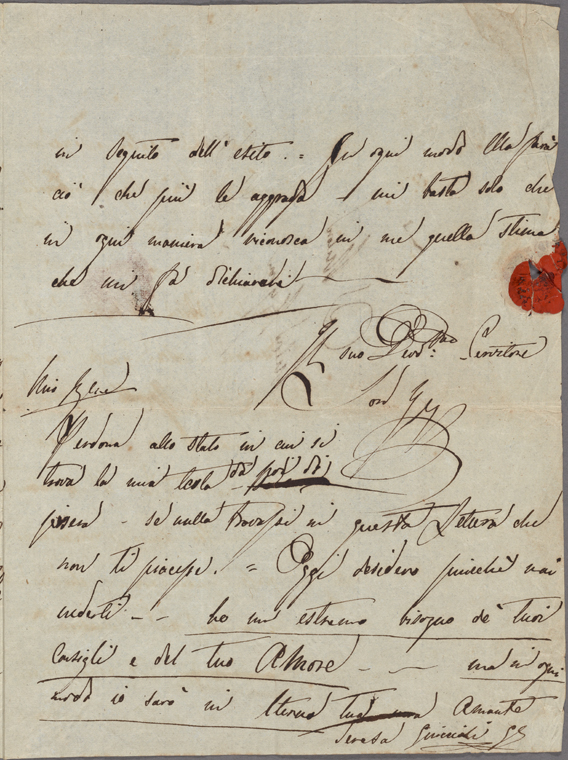 in seguito dell'esito. = In ogni modo Ella farà
ciò che più le aggrada, mi basta solo che
in ogni maniera riconosca in me quella stima
che mi fà dichiararmi
Il suo Servitore
Lord
Mio Bene
Perdona allo stato in cui si
trova la mia testa
se nulla trovassi in questa Lettera che
non ti piacesse. = Oggi desidero più che mai
vederti - - ho un estremo bisogno de' tuoi
Consigli e del tuo Amore - - ma in ogni
modo io sarò in Eterno tua Amante
Teresa GG